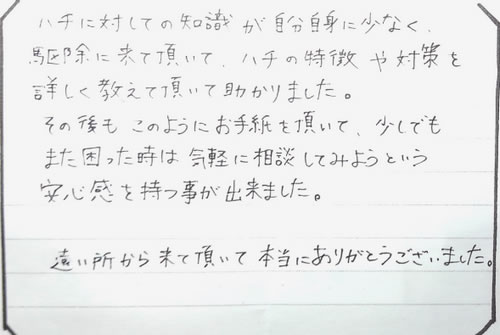 ハチに対しての知識が自分自身に少なく、
駆除に来て頂いて、ハチの特徴や対策を
詳しく教えて頂いて助かりました。
その後もこのようにお手紙を頂いて、少しでも
また困った時は気軽に相談してみようという
安心感を持つ事が出来ました。
遠い所から来て頂いて本当にありがとうございました。